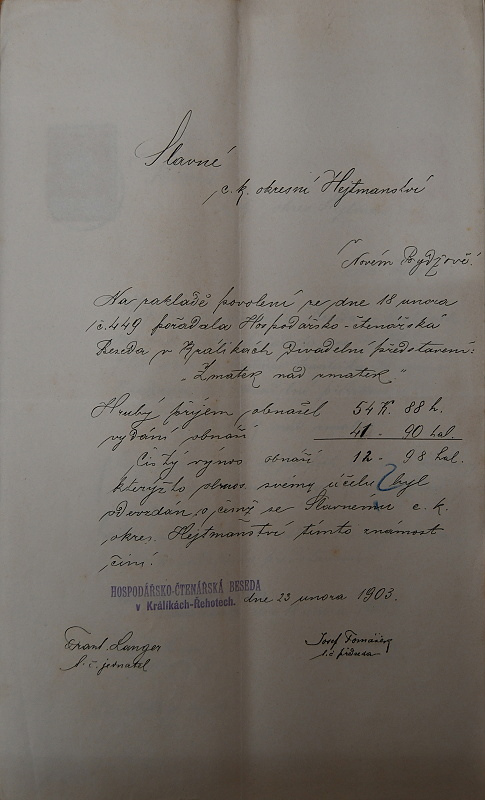 Slavné
c. k. okresní Hejtmanství
v Novém Bydžově!
Na základě povolení ze dne 18 unora
č. 449 pořádala Hospodářsko-čtenářská
Beseda v Králíkách Divadelní představení:
„Zmatek nad zmatek“
Hrubý příjem obnášel 54 K. 88 h.
vydání obnáší 41 - 90 hal.
Čistý výnos obnáší 12 - 98 hal.
kterýžto obnos svému účelu byl
odevzdán, o čemž se Slavnému c. k.
okres. Hejtmanství tímto známost
činí.
HOSPODÁŘSKO-ČTENÁŘSKÁ BESEDA
v Králíkách-Řehotech.
dne 23 unora 1903.
Frant. Langer
t. č. jednatel
Josef Tomášek
t. č. předseda